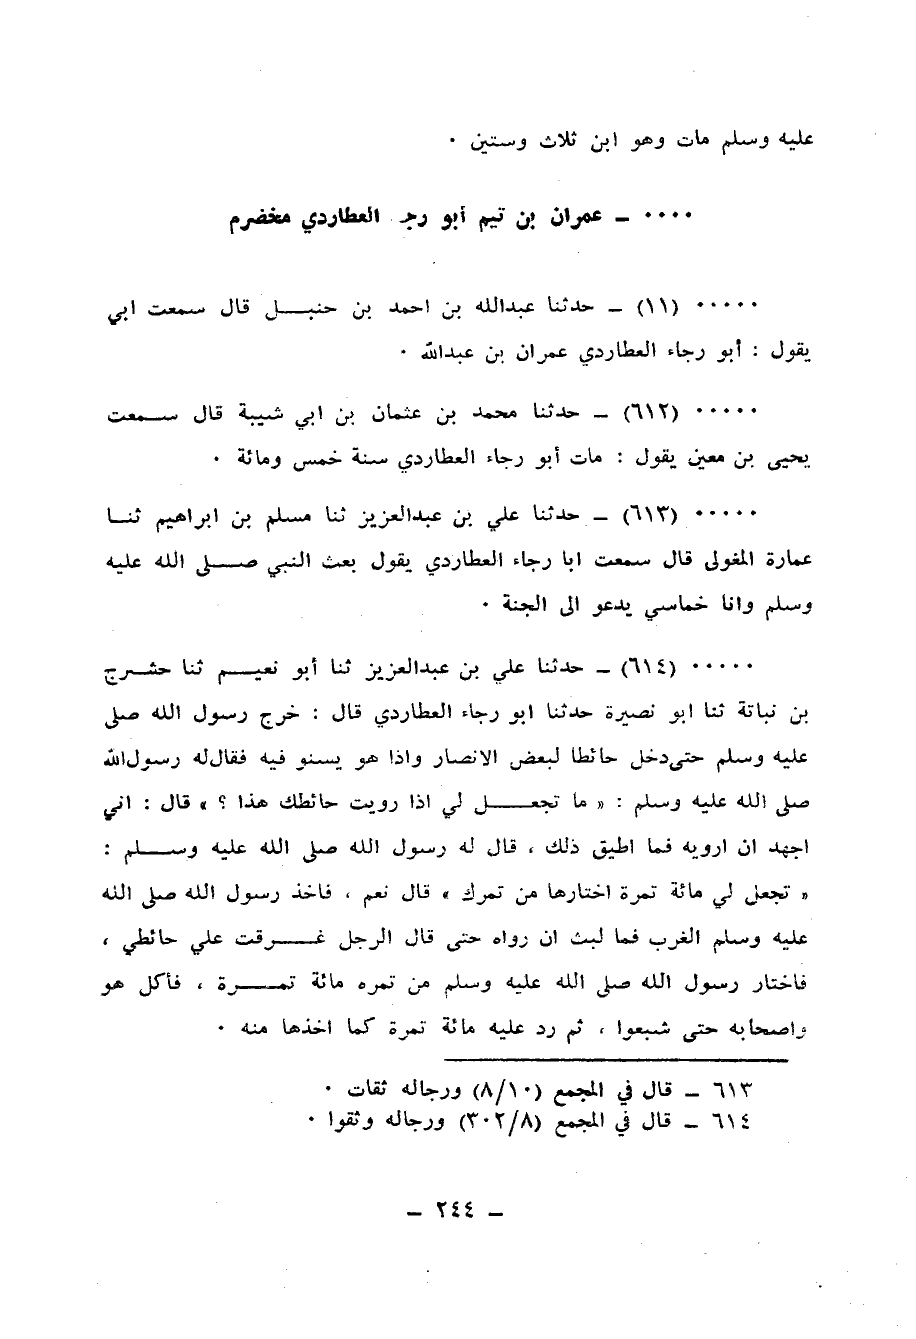 عليه وسلم مات وهو ابن ثلاث وستين ٠
٠٠٠٠ ــ عمران بن تيم أبو رجـ العطاردي مخضرم
٠٠٠٠٠ (١١) ــ حدثنا عبدالله بن احمد بن حنبـــل قال سمعت ابي
يقول : أبو رجاء العطاردي عمران بن عبدالله ٠
٠٠٠٠٠ (٦١٢) ــ حدثنا محمد بن عثمان بن ابي شيبة قال ســمعت
يحيى بن معين يقول : مات أبو رجاء العطاردي سنة خمس ومائة ٠
٠٠٠٠٠ (٦١٣) ــ حدثنا علي بن عبدالعزيز ثنا مسلم بن ابراهيم ثنــا
عمارة المغولى قال سمعت ابا رجاء العطاردي يقول بعث النبي صـــلى الله عليه
وسلم وانا خماسي يدعو الى الجنة ٠
٠٠٠٠٠ (٦١٤) ــ حدثنا علي بن عبدالعزيز ثنا أبو نعيـــم ثنا حشــرج
بن نباتة ثنا ابو نصيرة حدثنا ابو رجاء العطاردي قال : خرج رسول الله صلى
عليه وسلم حتى دخل حائطا لبعض الانصار واذا هو يسنو فيه فقال له رسول الله
صلى الله عليه وسلم : « ما تجعـــــل لي اذا رويت حائطك هذا ؟ » قال : اني
اجهد ان ارويه فما اطيق ذلك ، قال له رسول الله صلى الله عليه وســـلم :
« تجعل لي مائة تمرة اختارها من تمرك » قال نعم ، فاخذ رسول الله صلى الله
عليه وسلم الغرب فما لبث ان رواه حتى قال الرجل غـــرقت علي حائطي ،
فاختار رسول الله صلى الله عليه وسلم من تمره مائة تمـــرة ، فأكل هو
واصحابه حتى شبعوا ، ثم رد عليه مائة تمرة كما اخذها منه ٠
٦١٣ ــ قال في المجمع (٨/١٠) ورجاله ثقات ٠
٦١٤ ــ قال في المجمع (٣٠٢/٨) ورجاله وثقوا ٠
ــ ٢٤٤ ــ